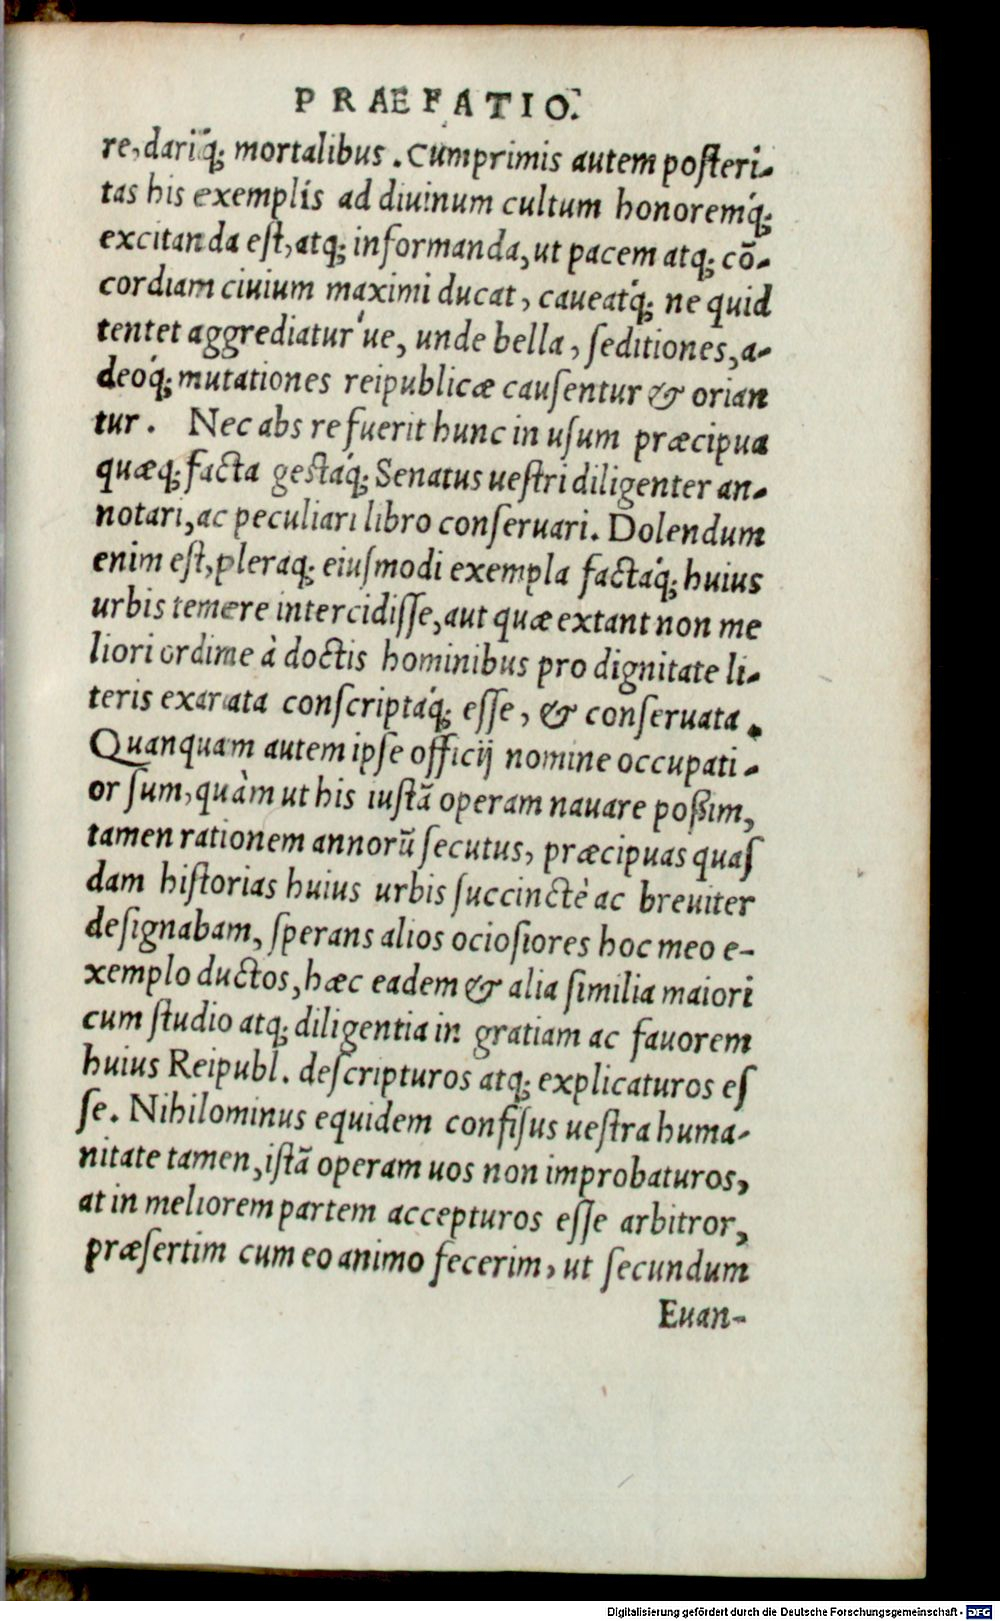 PRAEFATIO.
re, dariq́; mortalibus. Cumprimis autem posteri-
tas his exemplis ad diuinum cultum honoremq́;
excitanda est, atq; informanda, ut pacem atq; cō-
cordiam ciuium maximi ducat, caueatq́; ne quid
tentet aggrediatur'ue, unde bella, seditiones, a-
deoq́; mutationes reipublicæ causentur & orian
tur. Nec abs re fuerit hunc in usum præcipua
quæq; facta gestaq́; Senatus uestri diligenter an-
notari, ac peculiari libro conseruari. Dolendum
enim est, pleraq; eiusmodi exempla factaq́; huius
urbis temere intercidisse, aut quæ extant non me
liori ordine à doctis hominibus pro dignitate li-
teris exarata conscriptaq́; esse, & conseruata.
Quanquam autem ipse officij nomine occupati-
or sum, quàm ut his iustā operam nauare possim,
tamen rationem annorū secutus, præcipuas quas
dam historias huius urbis succinctè ac breuiter
designabam, sperans alios ociosiores hoc meo e-
xemplo ductos, hæc eadem & alia similia maiori
cum studio atq; diligentia in gratiam ac fauorem
huius Reipubl. descripturos atq; explicaturos es
se. Nihilominus equidem confisus uestra huma-
nitate tamen, istā operam uos non improbaturos,
at in meliorem partem accepturos esse arbitror,
præsertim cum eo animo fecerim, ut secundum
Euan-
Digitalisierung gefördert durch die Deutsche Forschungsgemeinschaft - DFG